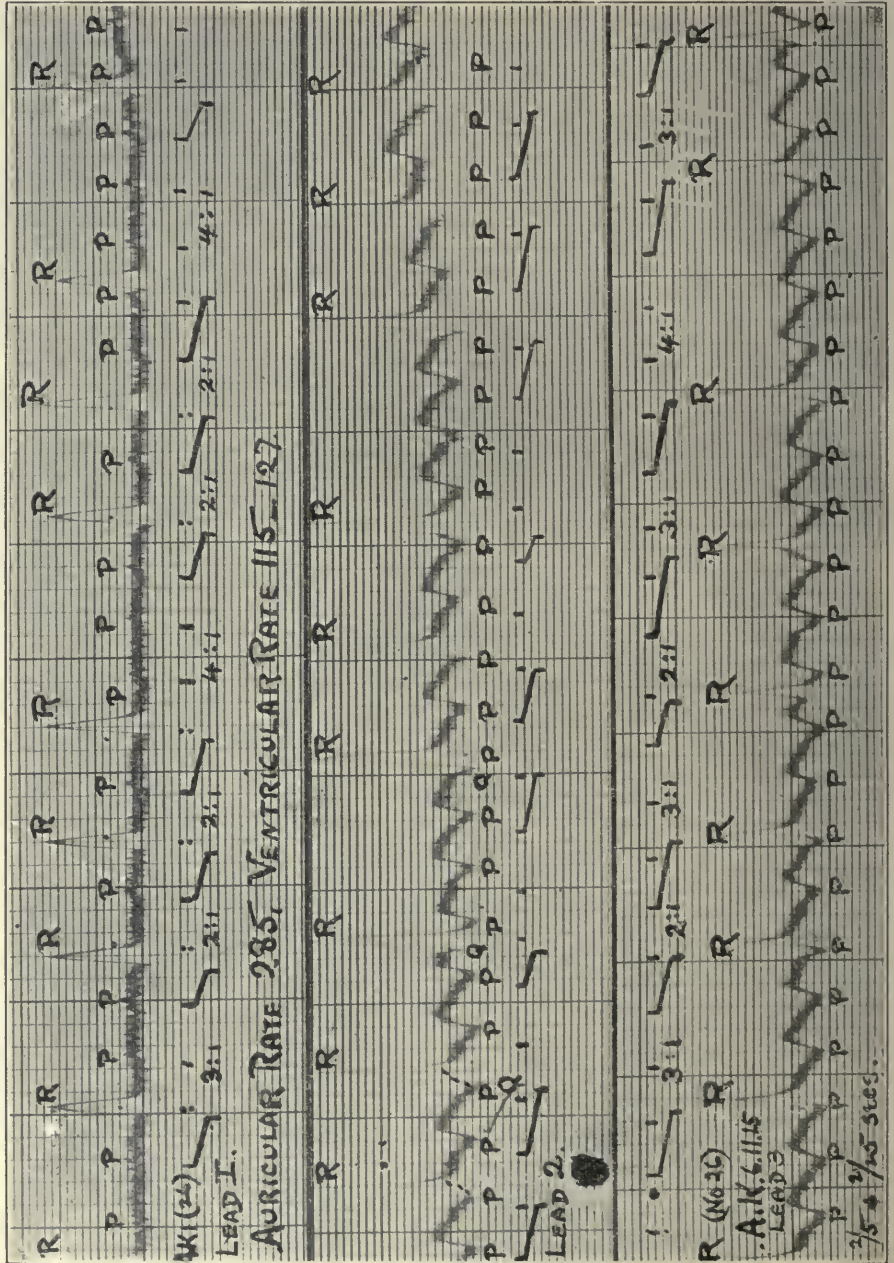 R R R R R R R R R
P P P P P P P P P P P P P P P P
3:1 2:1 2:1 4:1 2:1 2:1 4:1
LEAD I.
AURICULAR RATE 285, VENTRICULAR RATE 115_127.
R R R R R R R R R
P P P P Q P P Q P P P Q P P P P P P P P P P P P P P
LEAD 2.
3:1 2:1 3:1 2:1 3:1 4:1 3:1
R (No 26) R R R R R R R R
A.K. 6.11.15
LEAD 3
P P P P P P P P P P P P P P P P P P P P P P
2/5 & 2/25 secs.